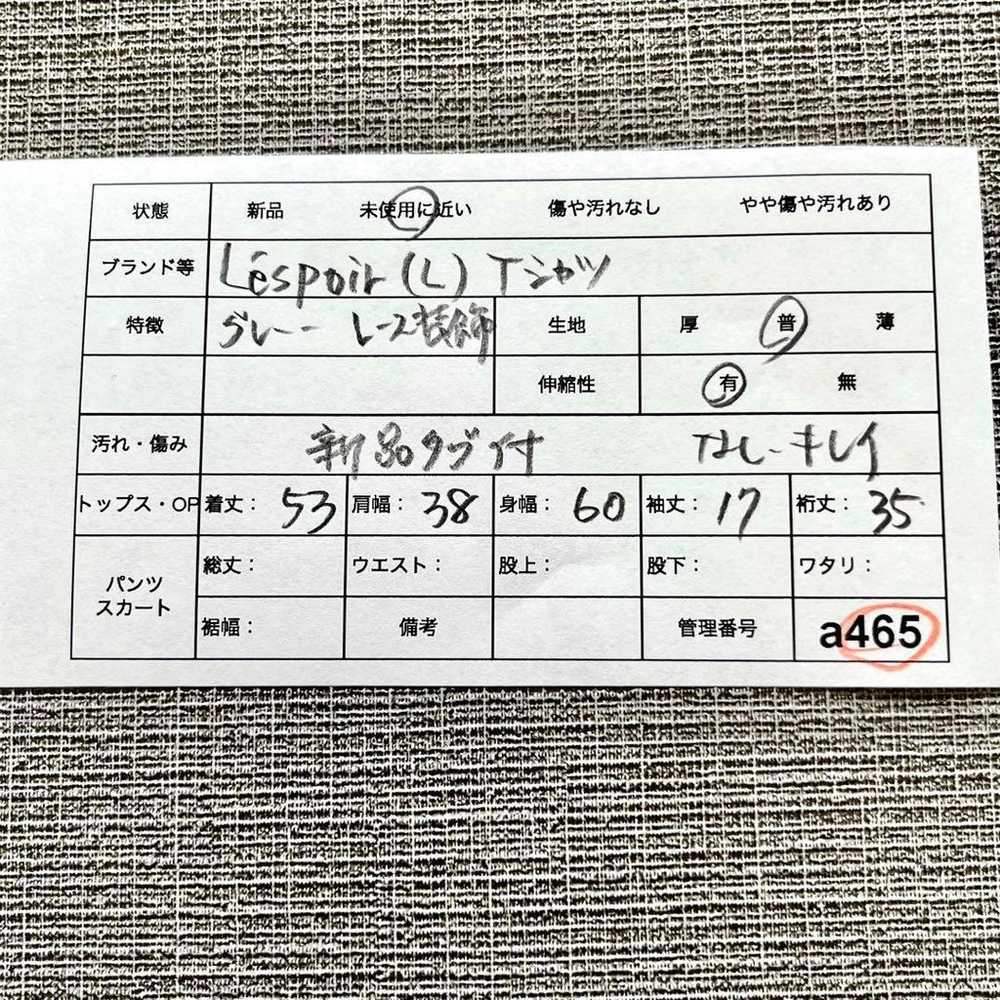 状態 新品 未使用に近い 傷や汚れなし やや傷や汚れあり
ブランド等 Léspoir (L) Tシャツ
特徴 グレー レース装飾 生地 厚 普 薄
伸縮性 有 無
汚れ・傷み 新品タグ付 なし キレイ
トップス・OP 着丈: 53 肩幅: 38 身幅: 60 袖丈: 17 裄丈: 35
パンツ スカート 総丈: ウエスト: 股上: 股下: ワタリ:
裾幅: 備考 管理番号 a465